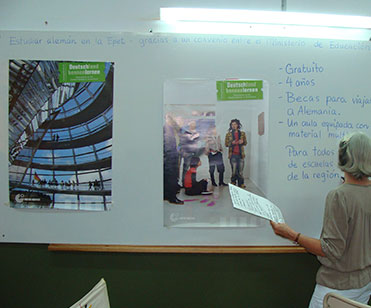 Estudiar alemán en la Epet - gratis a un convenio entre el Ministerio de Educación
Deutschland
kennenlernen
Deutschland
kennenlernen
- Gratuito
- 4 años
- Becas para viajar
a Alemania.
- Un aula equipada con
material
Para todos
de escuelas
de la región